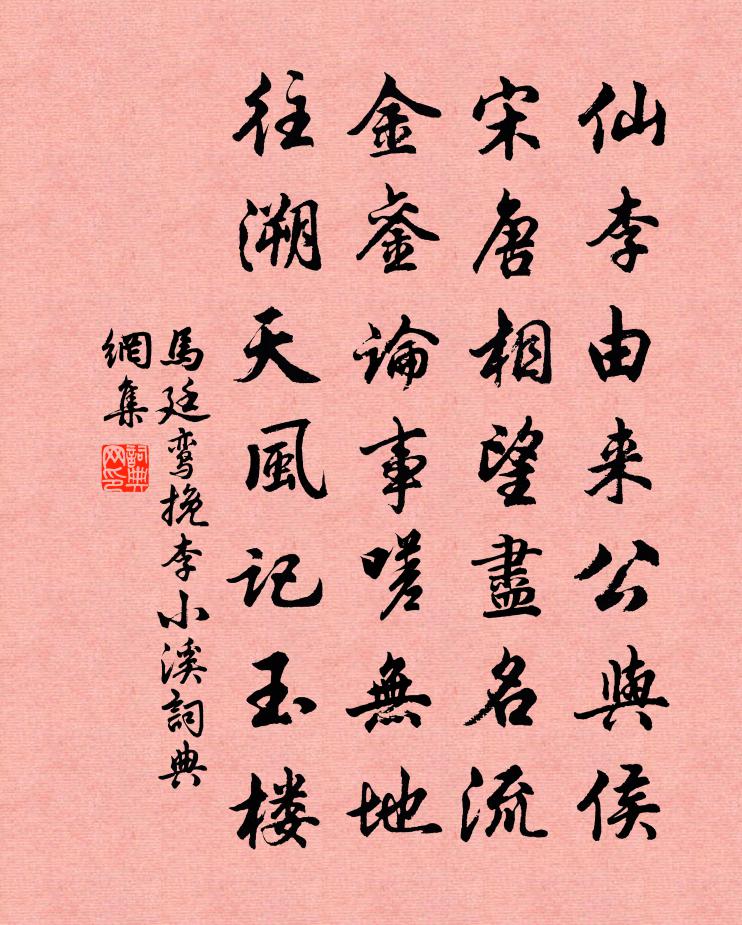 仙李由来公與侯
宋唐相望盡名流
金銮論事嗟無地
往溯天風記玉楼
馬廷鸾挽李小溪詞典
網集
詞典
网印